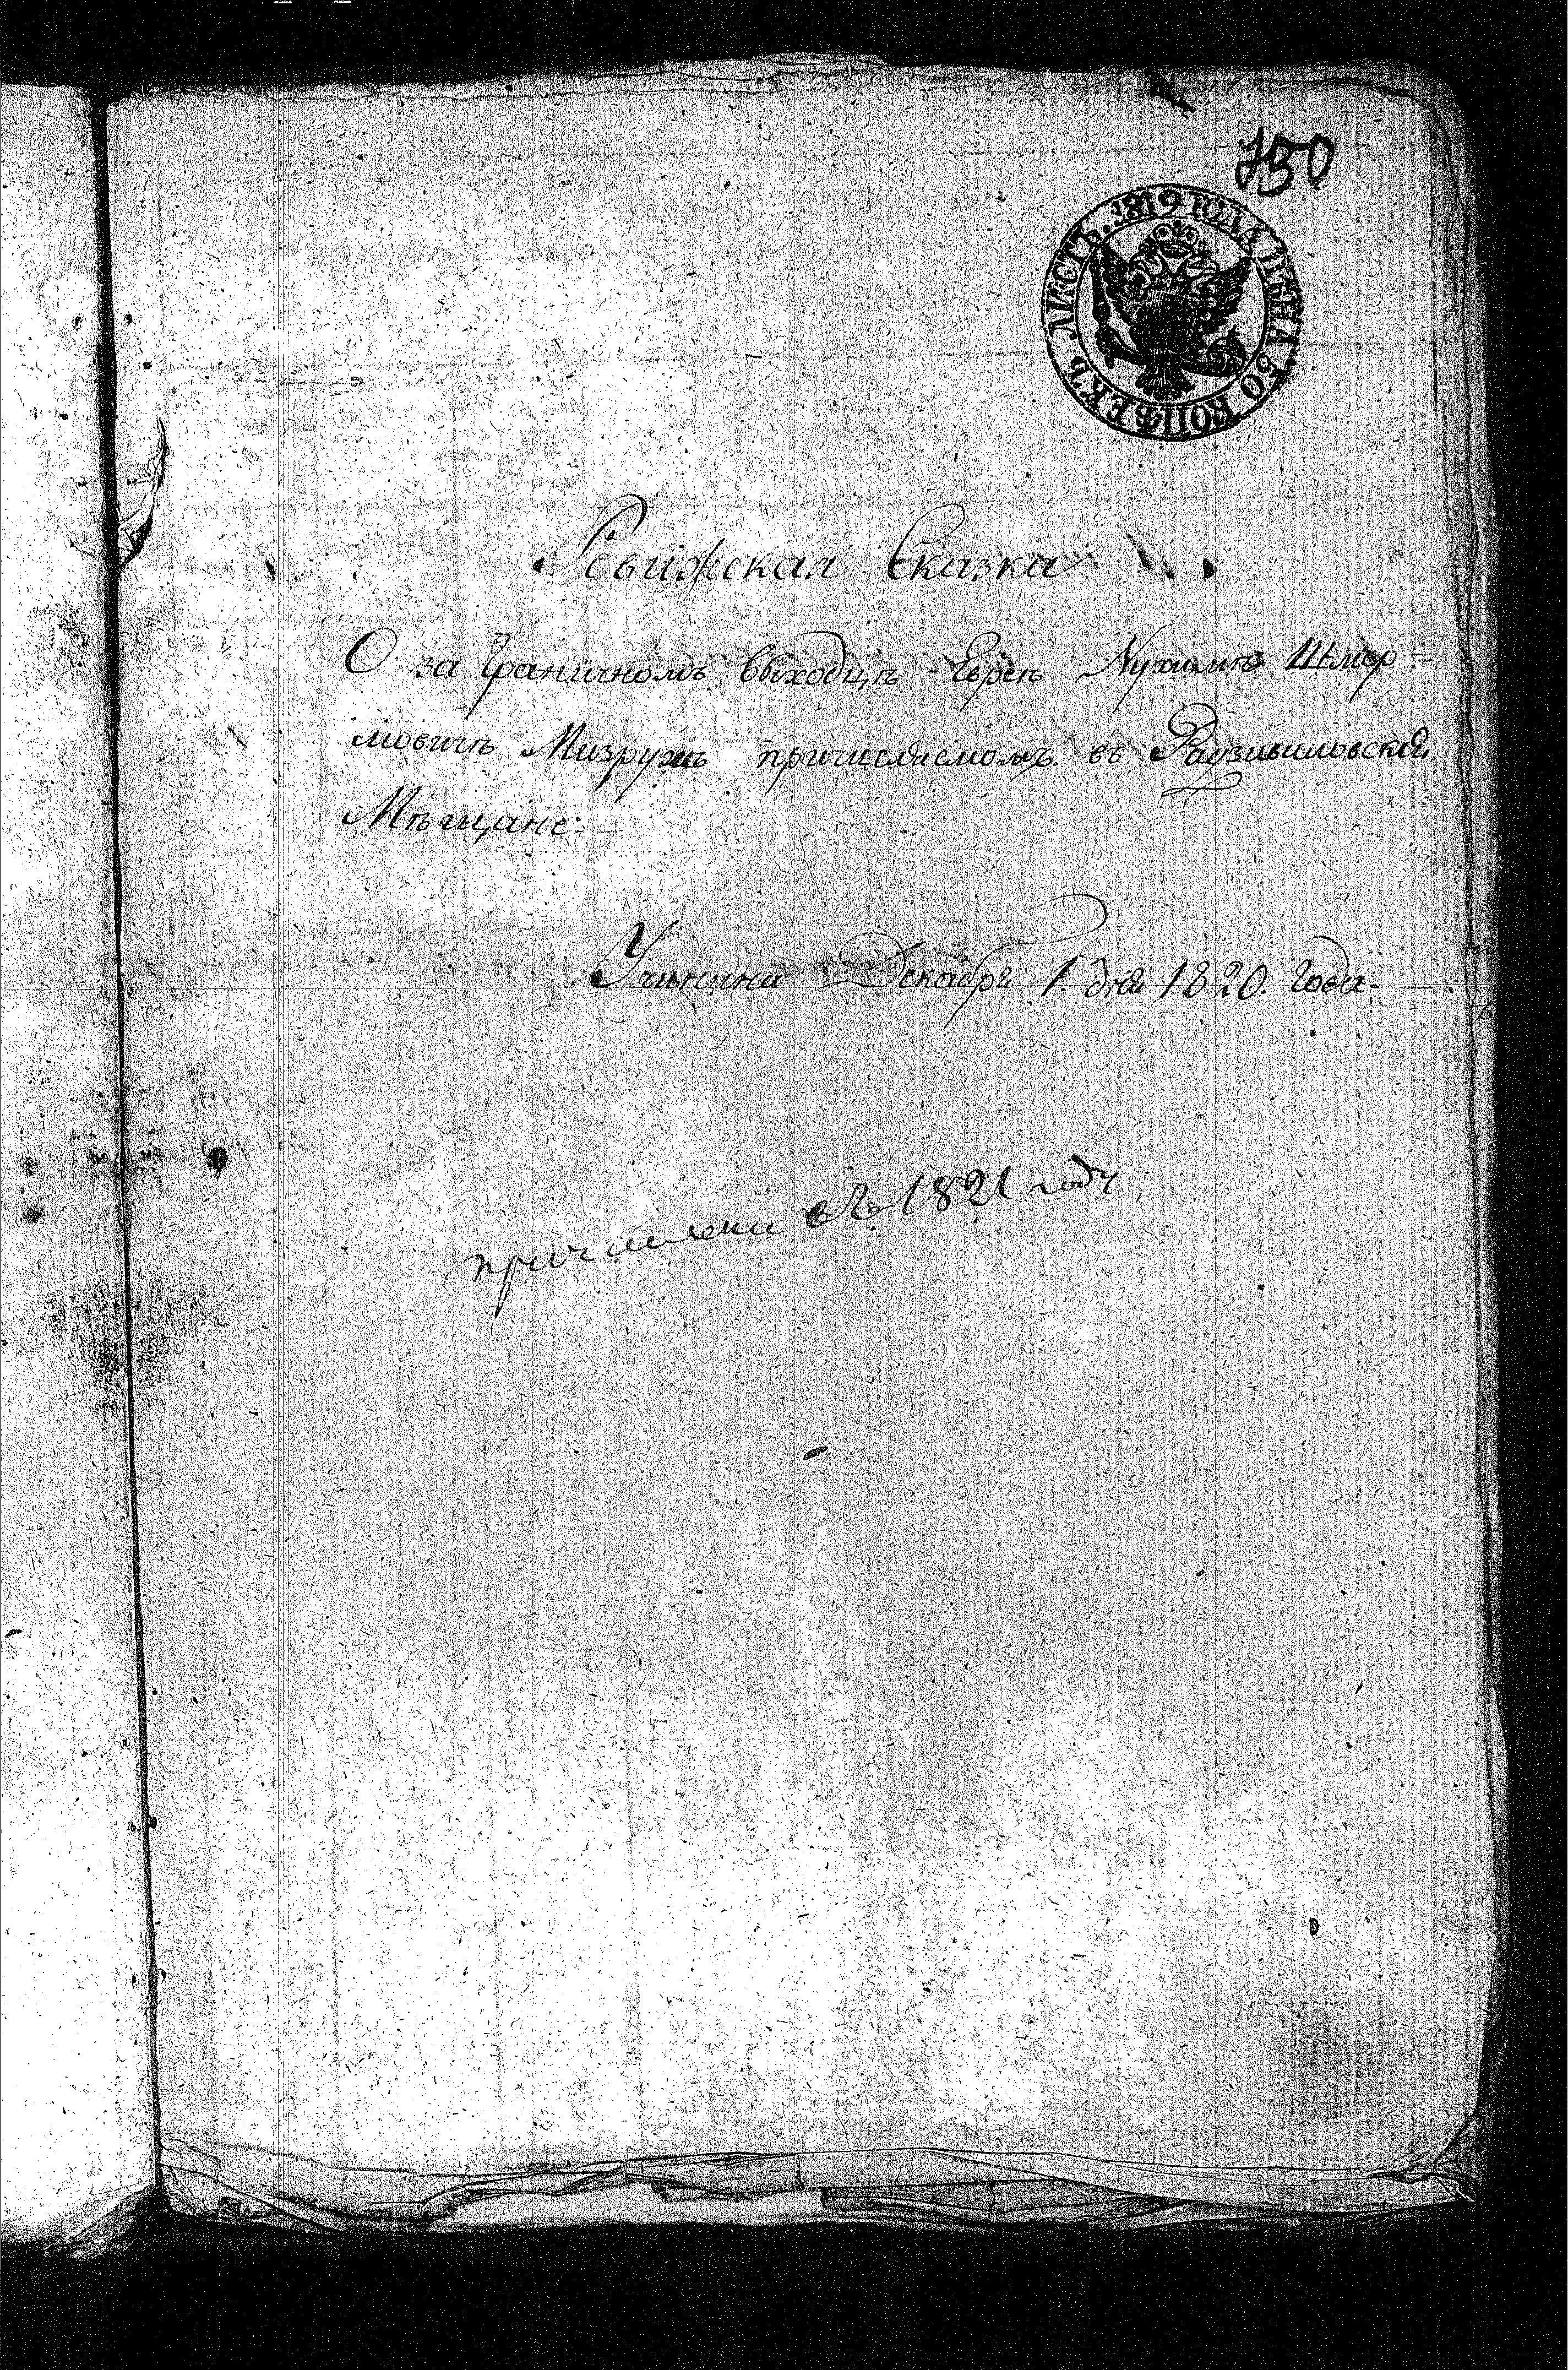 750
ЛИСТЪ. 1819 ГОДА ЦѢНА 50 КОПѢЕКЪ.
Ревижская Сказка
О за Граничномъ выходцѣ Еврѣѣ Нухимѣ Шмер-
мовичѣ Мизрухѣ причисляемомъ въ Радзивиловскіи
Мѣщане.
Учинина Декабря 1. дня 1820. года.
причислены въ 1821 году